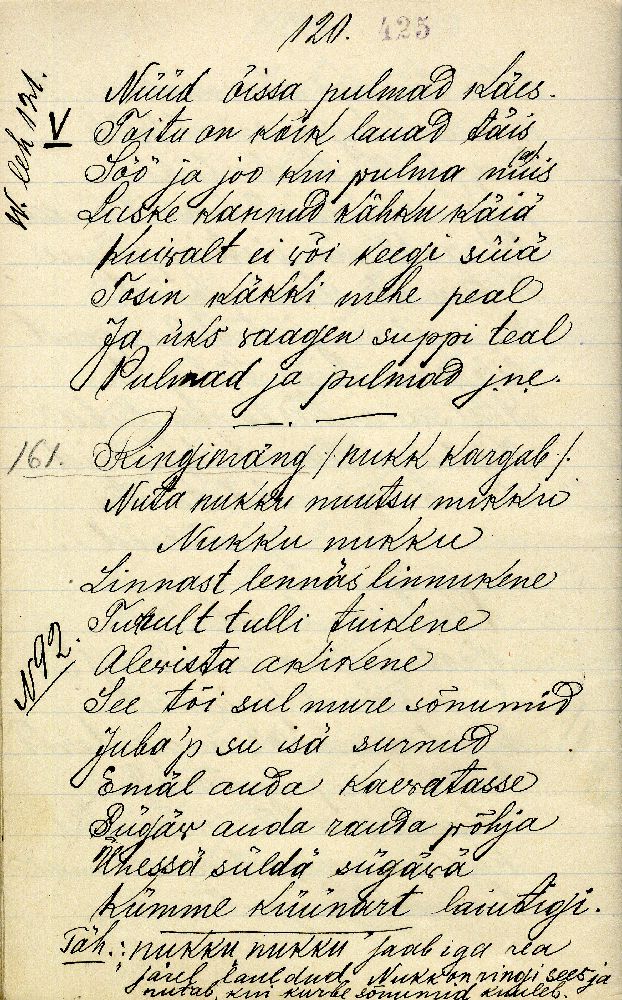 120. 425
W. leh 121.
V
Nüüd õissa pulmad käes.
Toitu on kõik lauad täis
Söö ja joo kui pulma niiis
Laske kannud kähku käiä
Kuiwalt ei wõi keegi süiä
Tosin käkki mehe peal
Ja üks waagen suppi teal
Pulmad ja pulmad jne.
161. Ringimäng / nukk kargab /.
Nuta nukku nuutsu nukku
Nukku nukku
Linnast lennäs linnukene
Turult tulli tuikene
N92.
Alewista akikene
See tõi sul mure sõnumid
Juba'p su isä surnud
Emäl auda kaewatasse
Sügäw auda randa põhja
Ühessä süldä sügäwä
Kümme küünart laiutigi.
Täh.: nukku nukku jaab iga rea
järel lauldud. Nukk on ringi sees ja
nutab, kui kurbe sõnumid kuuleb.